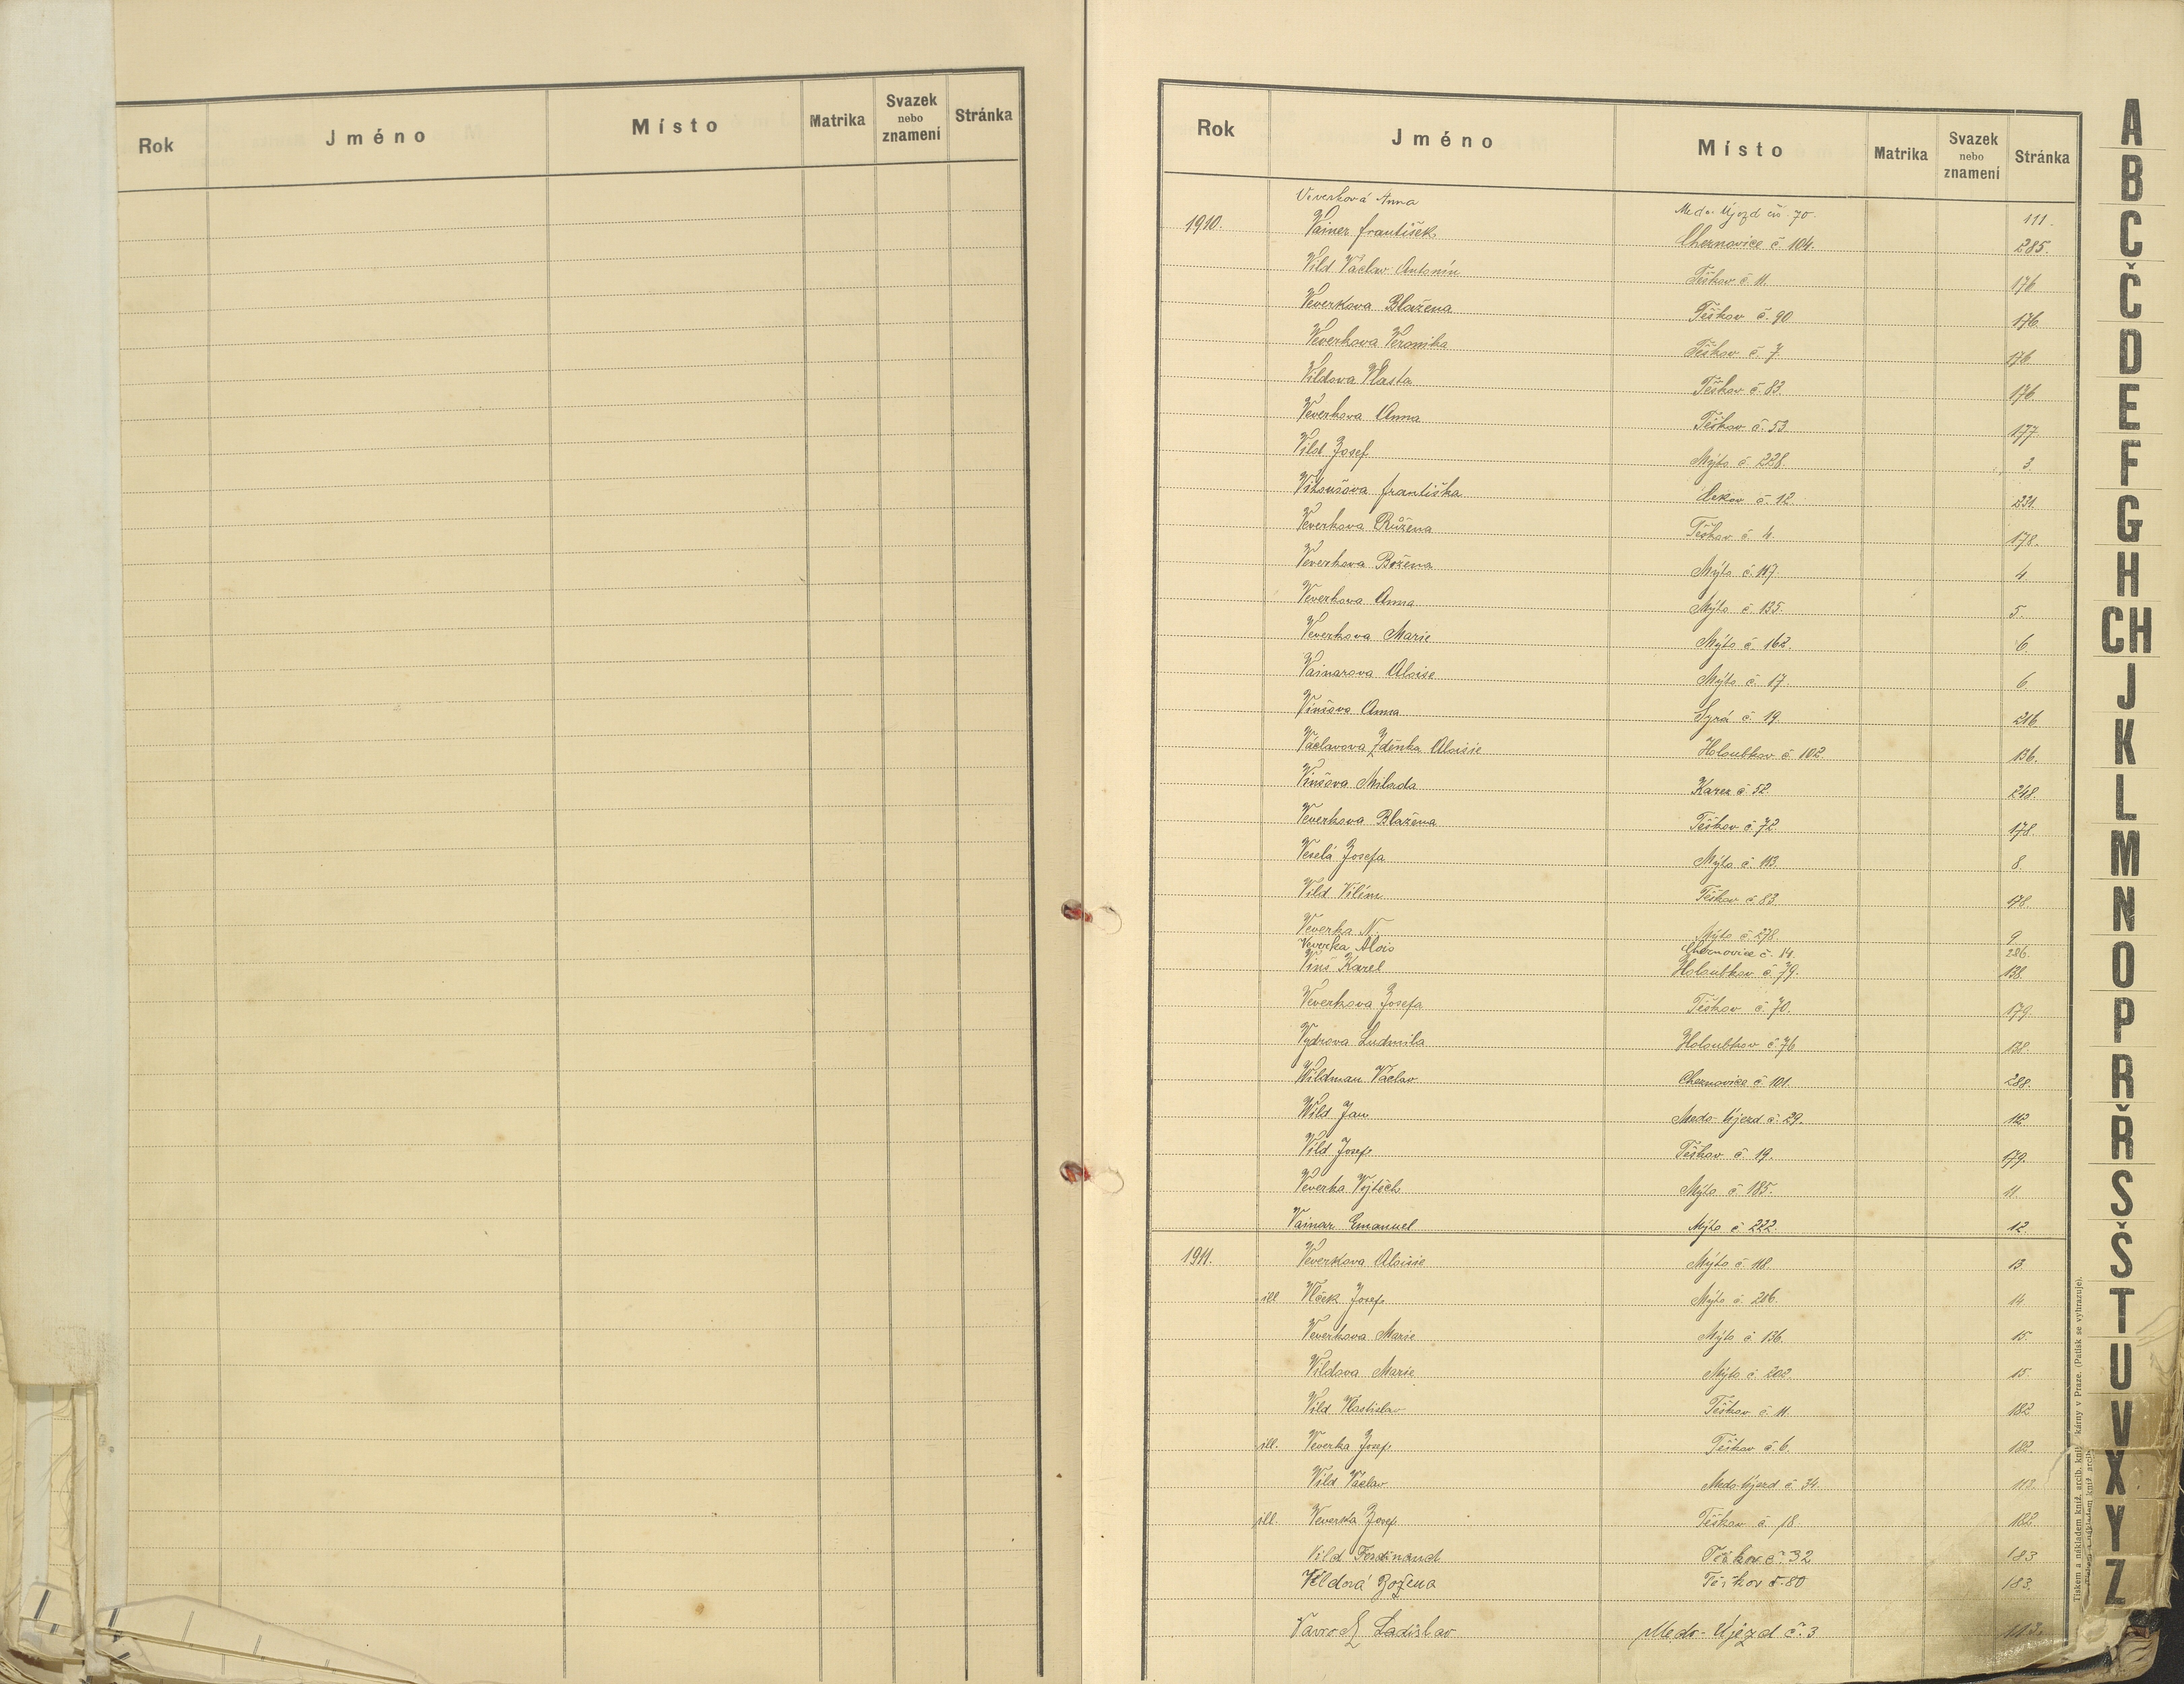 Rok Jméno Místo Matrika Svazek nebo znamení Stránka
Rok Jméno Místo Matrika Svazek nebo znamení Stránka
Veverková Anna Medo. Újezd čís. 70. 111.
1910. Vainer František Cheznovice č. 104. 285.
Vild Václav Antonín Těškov č. 11. 176
Veverkova Blažena Těškov č. 90 176.
Veverkova Veronika Těškov č. 7. 176
Vildova Vlasta Těškov č. 83. 176
Veverkova Anna Těškov č. 53 177.
Vild Josef Mýto č. 228. 3.
Vitoušova Františka č. 12. 231.
Veverkova Růžena Těškov č. 4. 178.
Veverkova Božena Mýto č. 117. 4
Veverkova Anna Mýto č. 135. 5.
Veverkova Marie Mýto č. 162. 6
Vainarova Aloisie Mýto č. 17. 6
Vinšova Anna Syrá č. 19. 216.
Václavova Zdeňka Aloisie Holoubkov č. 102. 136.
Vinšova Milada Karez č. 52. 248.
Veverkova Blažena Těškov č. 72. 178.
Veselá Josefa Mýto č. 113. 8
Vild Vilém Těškov č. 83 178.
Veverka N. Mýto č. 278. 9
Veverka Alois Cheznovice č. 14. 286.
Vinš Karel Holoubkov č. 79. 138.
Veverkova Josefa Těškov č. 70. 179
Vydrova Ludmila Holoubkov č. 76 138.
Wildman Václav Cheznovice č. 101. 288.
Wild Jan Medo-Újezd č. 29. 112
Vild Josef Těškov č. 19. 179.
Veverka Vojtěch Mýto č. 185. 11.
Vainar Emanuel Mýto č. 222. 12.
1911. Veverkova Aloisie Mýto č. 118. 13
ill Vlček Josef Mýto č. 206. 14
Veverkova Marie Mýto č. 136. 15.
Vildova Marie Mýto č. 202. 15.
Vild Vlastislav Těškov č. 11. 182
ill. Veverka Josef Těškov č. 6. 182.
Vild Václav Medo-Újezd č. 34. 113.
ill. Veverka Josef Těškov č. 18. 182
Vild Ferdinand Těškov č. 32 183
Vildová Božena Těškov č. 80 183.
Ladislav Medo-Újezd č. 3 113.
A
B
C
Č
D
E
F
G
H
CH
J
K
L
M
N
O
P
R
Ř
S
Š
T
U
V
X
Y
Z
Tiskem a nákladem kniž. arcib. kni kárny v Praze. (Patisk se vyhrazuje).